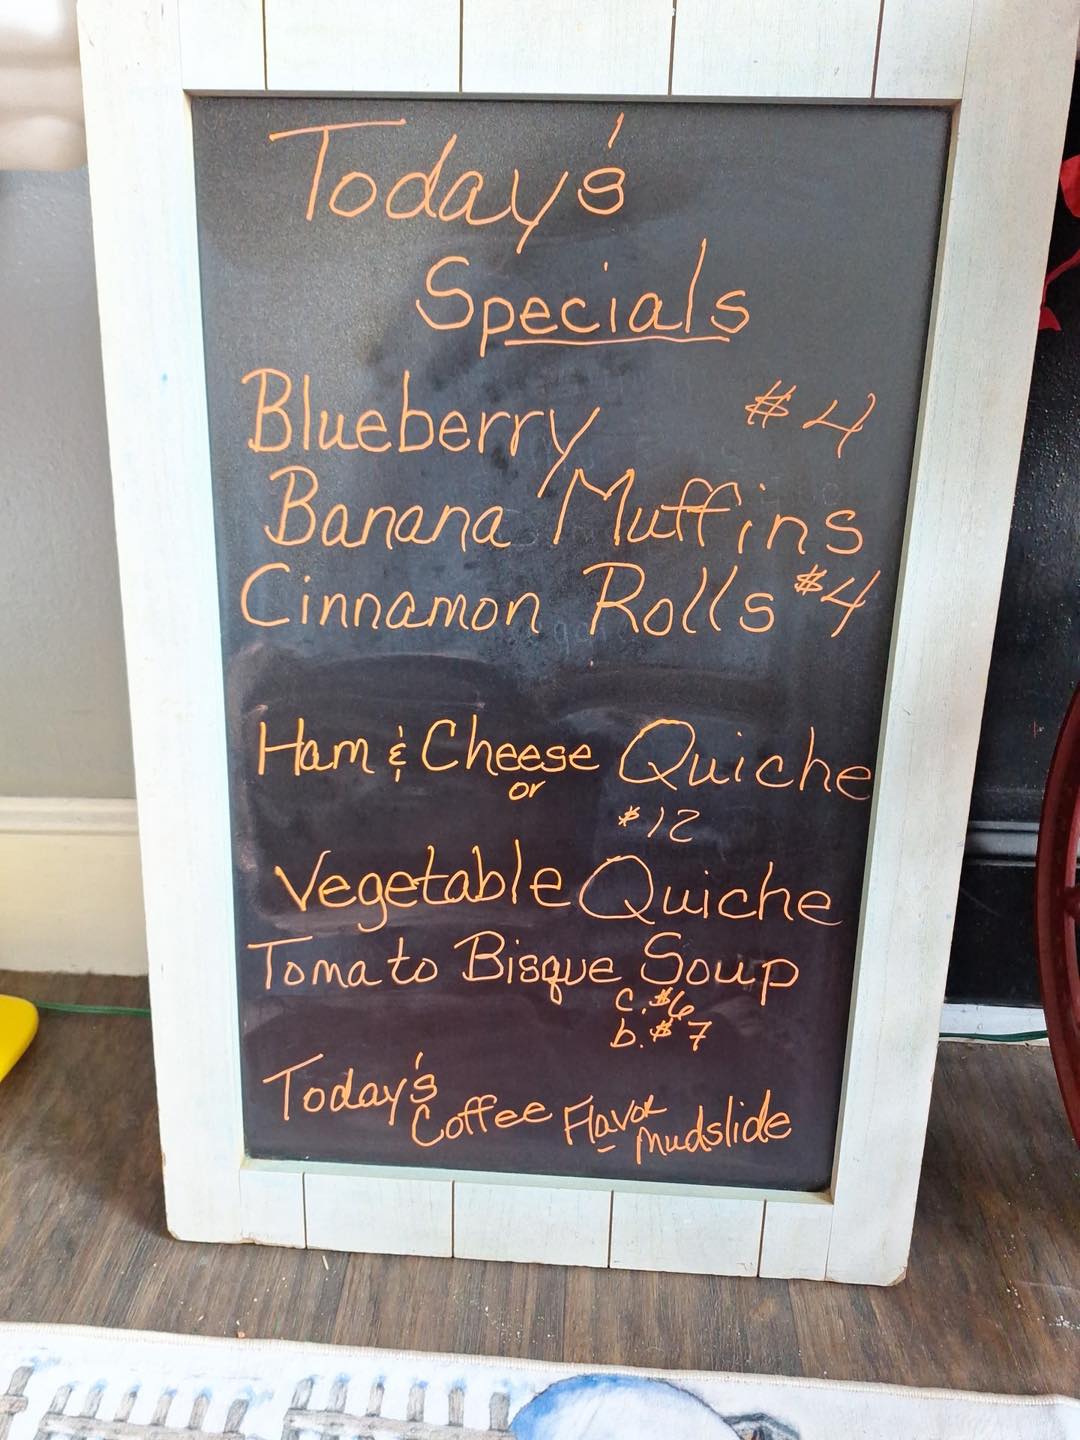 Today's
Specials
Blueberry $4
Banana Muffins
Cinnamon Rolls $4
Ham & Cheese Quiche
or
$12
Vegetable Quiche
Tomato Bisque Soup
c. $6
b. $7
Today's
Coffee Flavor
Mudslide